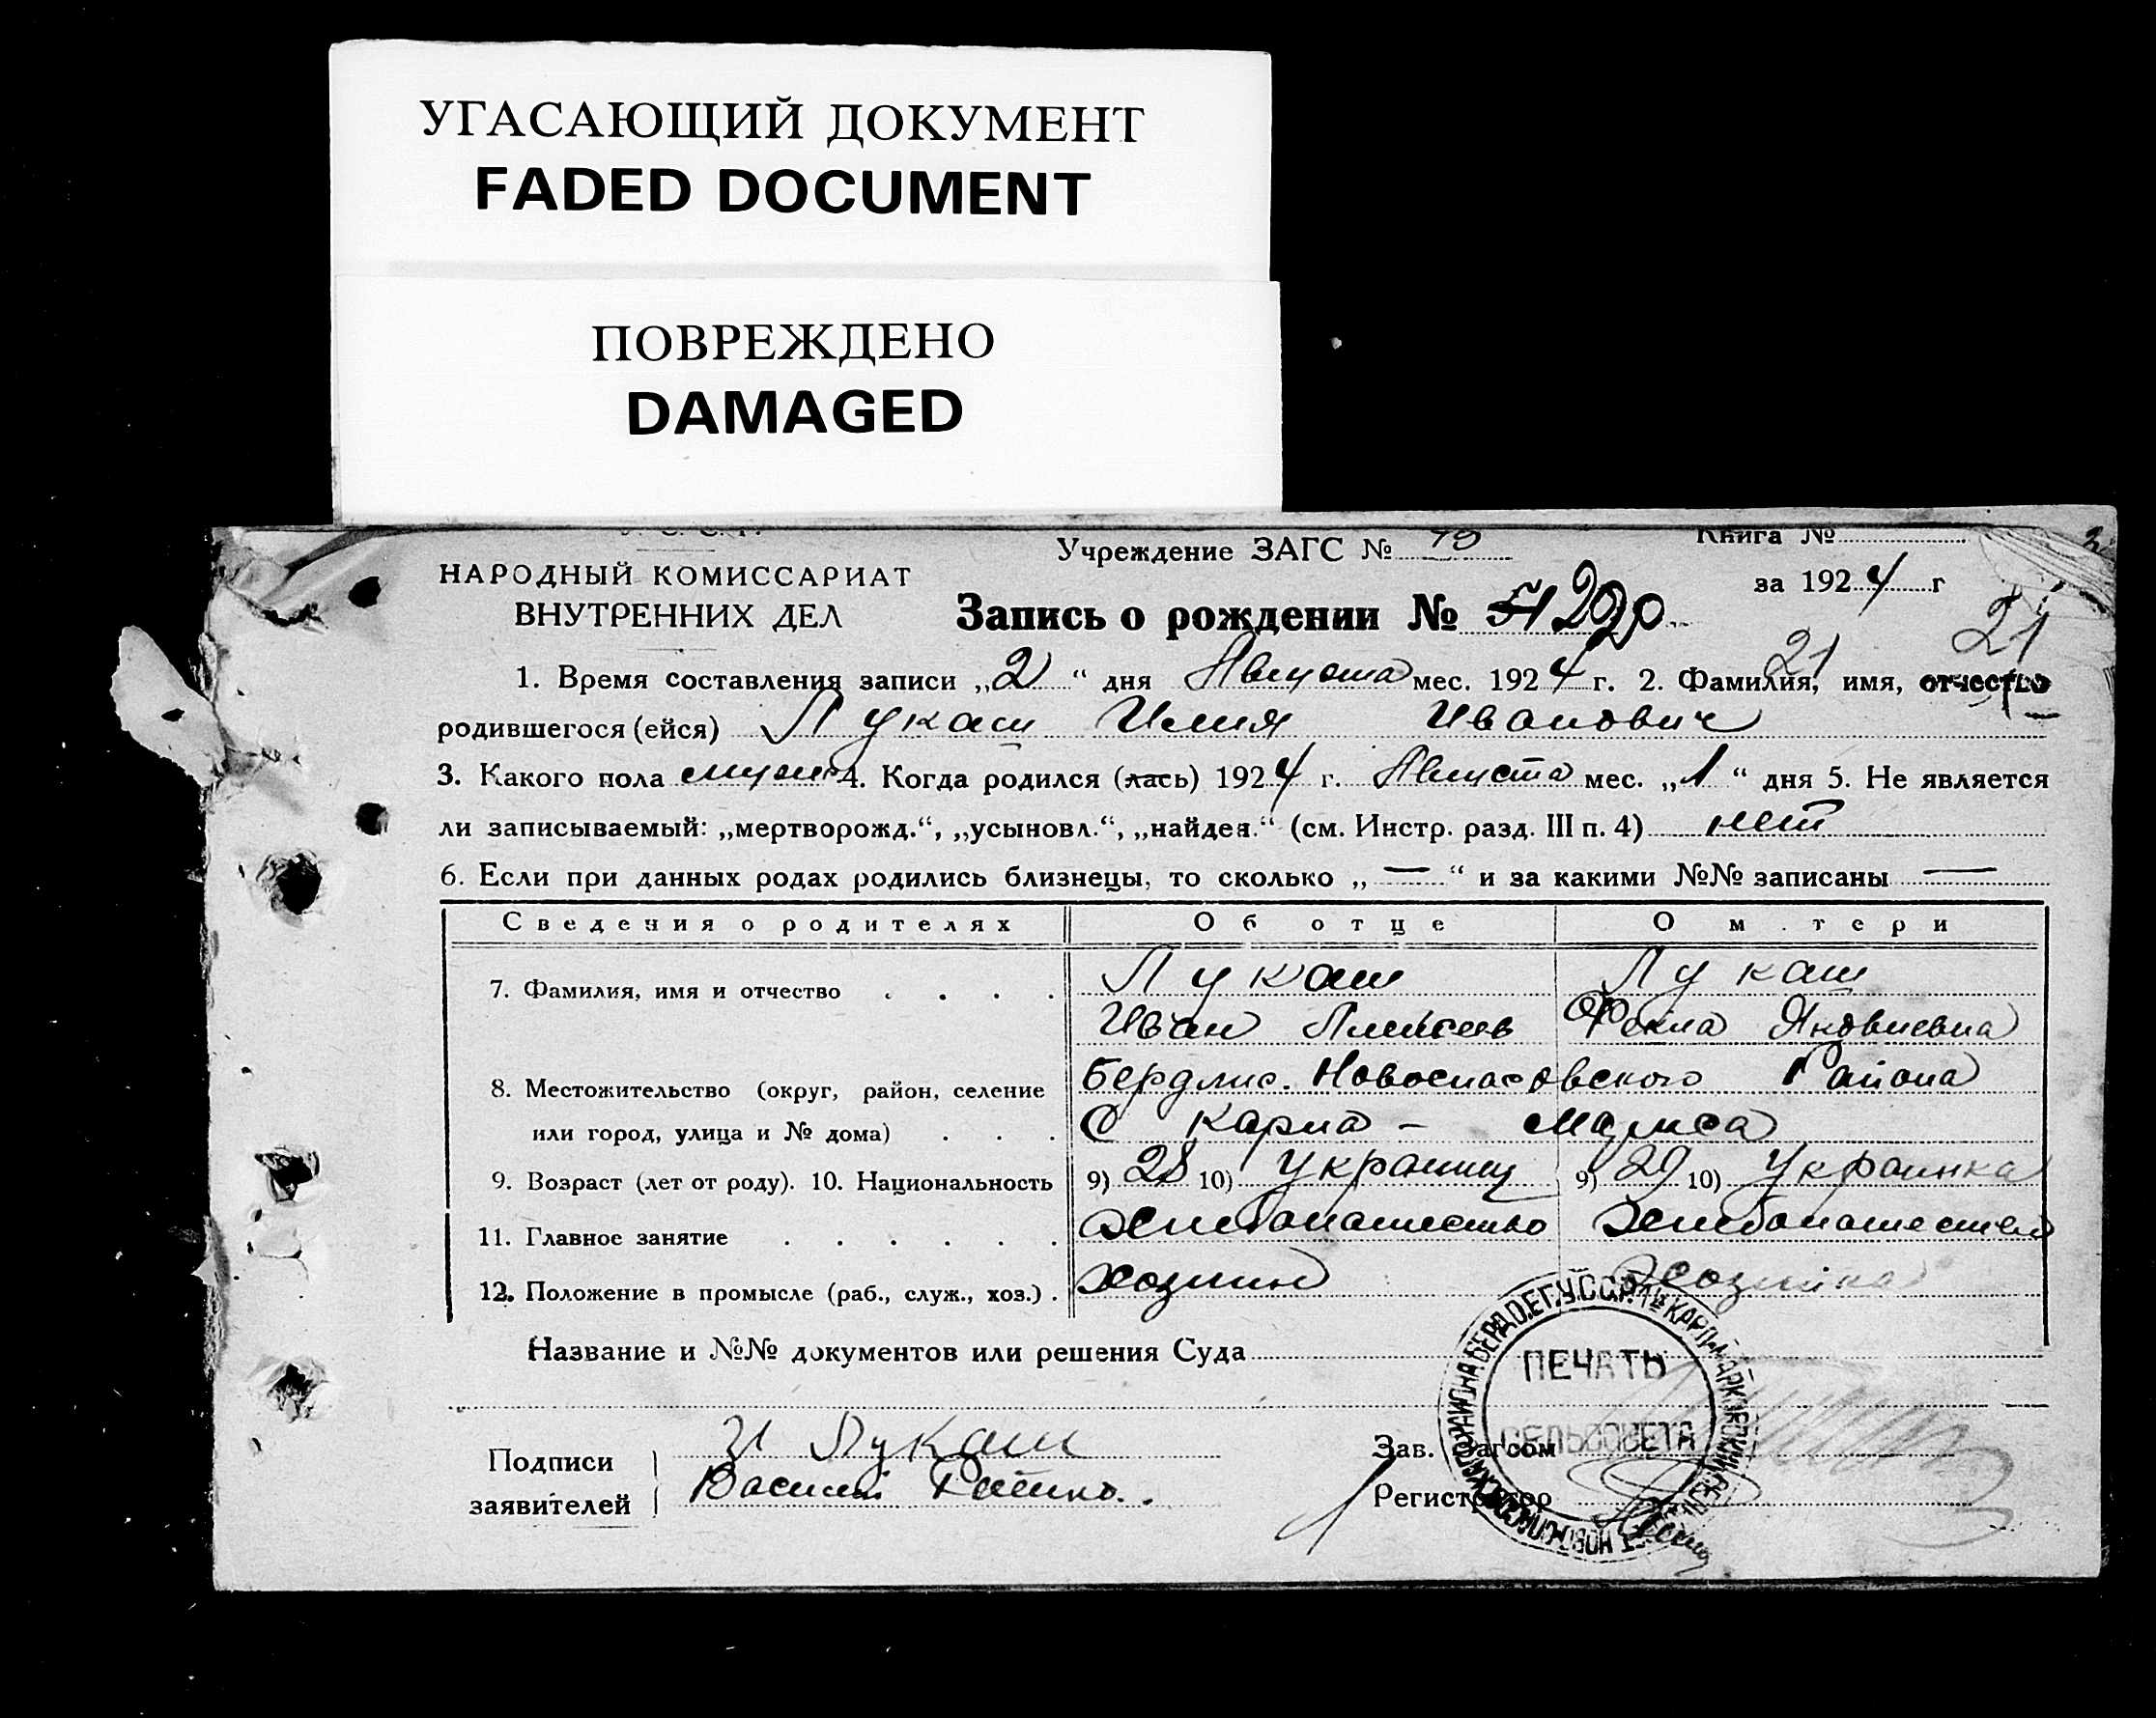 УГАСАЮЩИЙ ДОКУМЕНТ
FADED DOCUMENT
ПОВРЕЖДЕНО
DAMAGED
Учреждение ЗАГС №
Книга №
НАРОДНЫЙ КОМИССАРИАТ
за 1924 г
ВНУТРЕННИХ ДЕЛ
Запись о рождении № 51 20
21
21
1. Время составления записи „2“ дня Августа мес. 1924 г. 2. Фамилия, имя, отчество
родившегося (ейся) Лукаш Илия Иванович
3. Какого пола муж 4. Когда родился (лась) 1924 г. Августа мес. „1“ дня 5. Не является
ли записываемый: „мертворожд.“, „усыновл.“, „найден.“ (см. Инстр. разд. III п. 4) нет
6. Если при данных родах родились близнецы, то сколько „—“ и за какими №№ записаны —
Сведения о родителях Об отце О м.тери
7. Фамилия, имя и отчество . . . . Лукаш Лукаш
Иван Алексеев Фекла Яковлевна
8. Местожительство (округ, район, селение Бердянс. Новоспасовского Района
или город, улица и № дома) . . . С Карла - Маркса
9. Возраст (лет от роду). 10. Национальность 9) 28 10) Украинец 9) 29 10) Украинка
11. Главное занятие . . . . . . Хлебопашество
12. Положение в промысле (раб., служ., хоз.) . хозяин Хозяйка
Название и №№ документов или решения Суда
ПЕЧАТЬ
СЕЛЬСОВЕТА
Подписи
заявителей
И Лукаш
Василий
Зав. Загсом
Регистратор